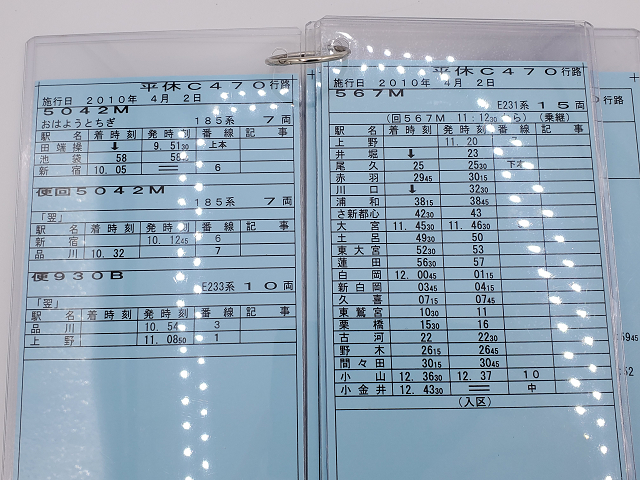 平休C470行路
施行日 2010年 4月 2日
5042M
おはようとちぎ 185系 7両
駅名 着時刻 発時刻 番線 記事
田端操 ↓ 9.5130 上本
池袋 58 58
新宿 10.05 ═ 6
便回5042M
185系 7両
「翌」
駅名 着時刻 発時刻 番線 記事
新宿 10.1245 6
品川 10.32 7
便930B
E233系 10両
「翌」
駅名 着時刻 発時刻 番線 記事
品川 10.54 3
上野 11.0850 1
平休C470行路
施行日 2010年 4月 2日
567M
E231系 15両
(回567M 11:1230から) (乗継)
駅名 着時刻 発時刻 番線 記事
上野 11.20
井堀 ↓ 23
尾久 25 2530 下本
赤羽 2945 3015
川口 ↓ 3230
浦和 3815 3845
さ新都心 4230 43
大宮 11.4530 11.4630
土呂 4930 50
東大宮 5230 53
蓮田 5630 57
白岡 12.0045 0115
新白岡 0345 0415
久喜 0715 0745
東鷲宮 1030 11
栗橋 1530 16
古河 22 2230
野木 2615 2645
間々田 3015 3045
小山 12.3630 12.37 10
小金井 12.4330 ═ 中
(入区)
路
5945
52